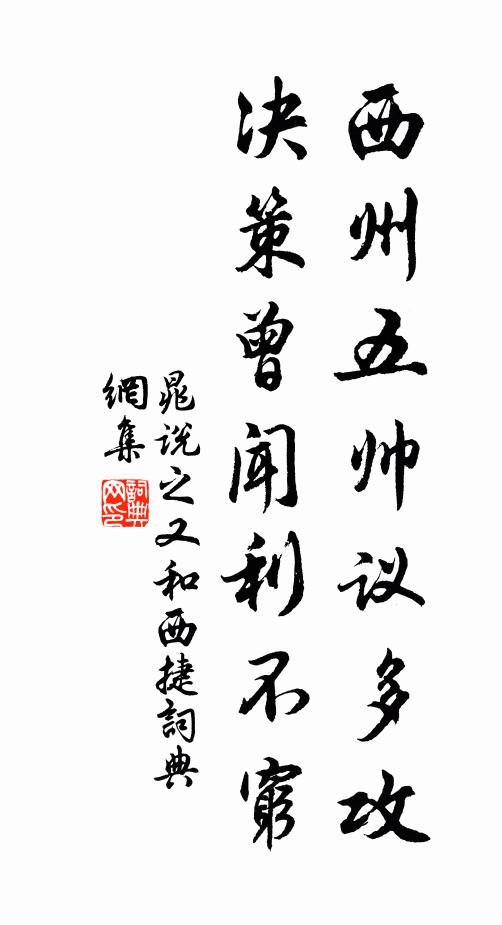 西州五帅议多攻
决策曾闻利不窮
晁说之又和西捷詞典
網集
詞典网印